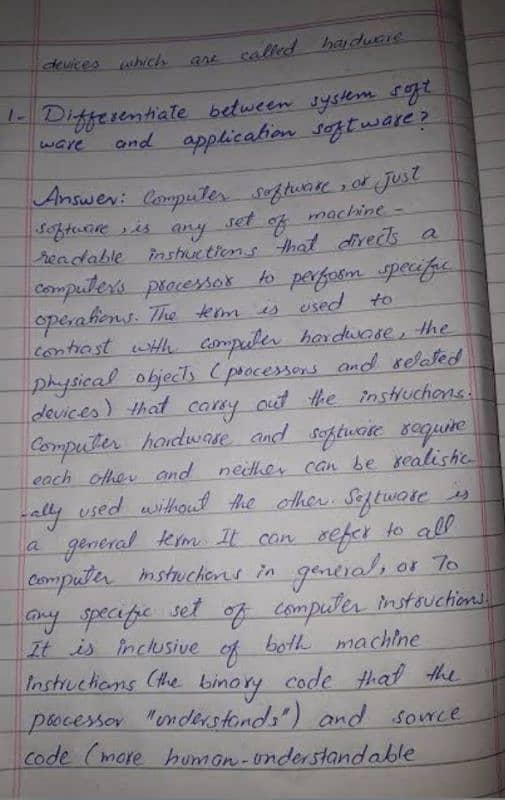 devices which are called hardware
1- Differentiate between system soft
ware and application software?
Answer: Computer software, or just
software, is any set of machine-
readable instructions that directs a
computer's processor to perform specific
operations. The term is used to
contrast with computer hardware, the
physical objects (processors and related
devices) that carry out the instructions.
Computer hardware and software require
each other and neither can be realistic
-ally used without the other. Software is
a general term. It can refer to all
computer instructions in general, or To
any specific set of computer instructions.
It is inclusive of both machine
instructions (the binary code that the
processor "understands") and source
code (more human-understandable